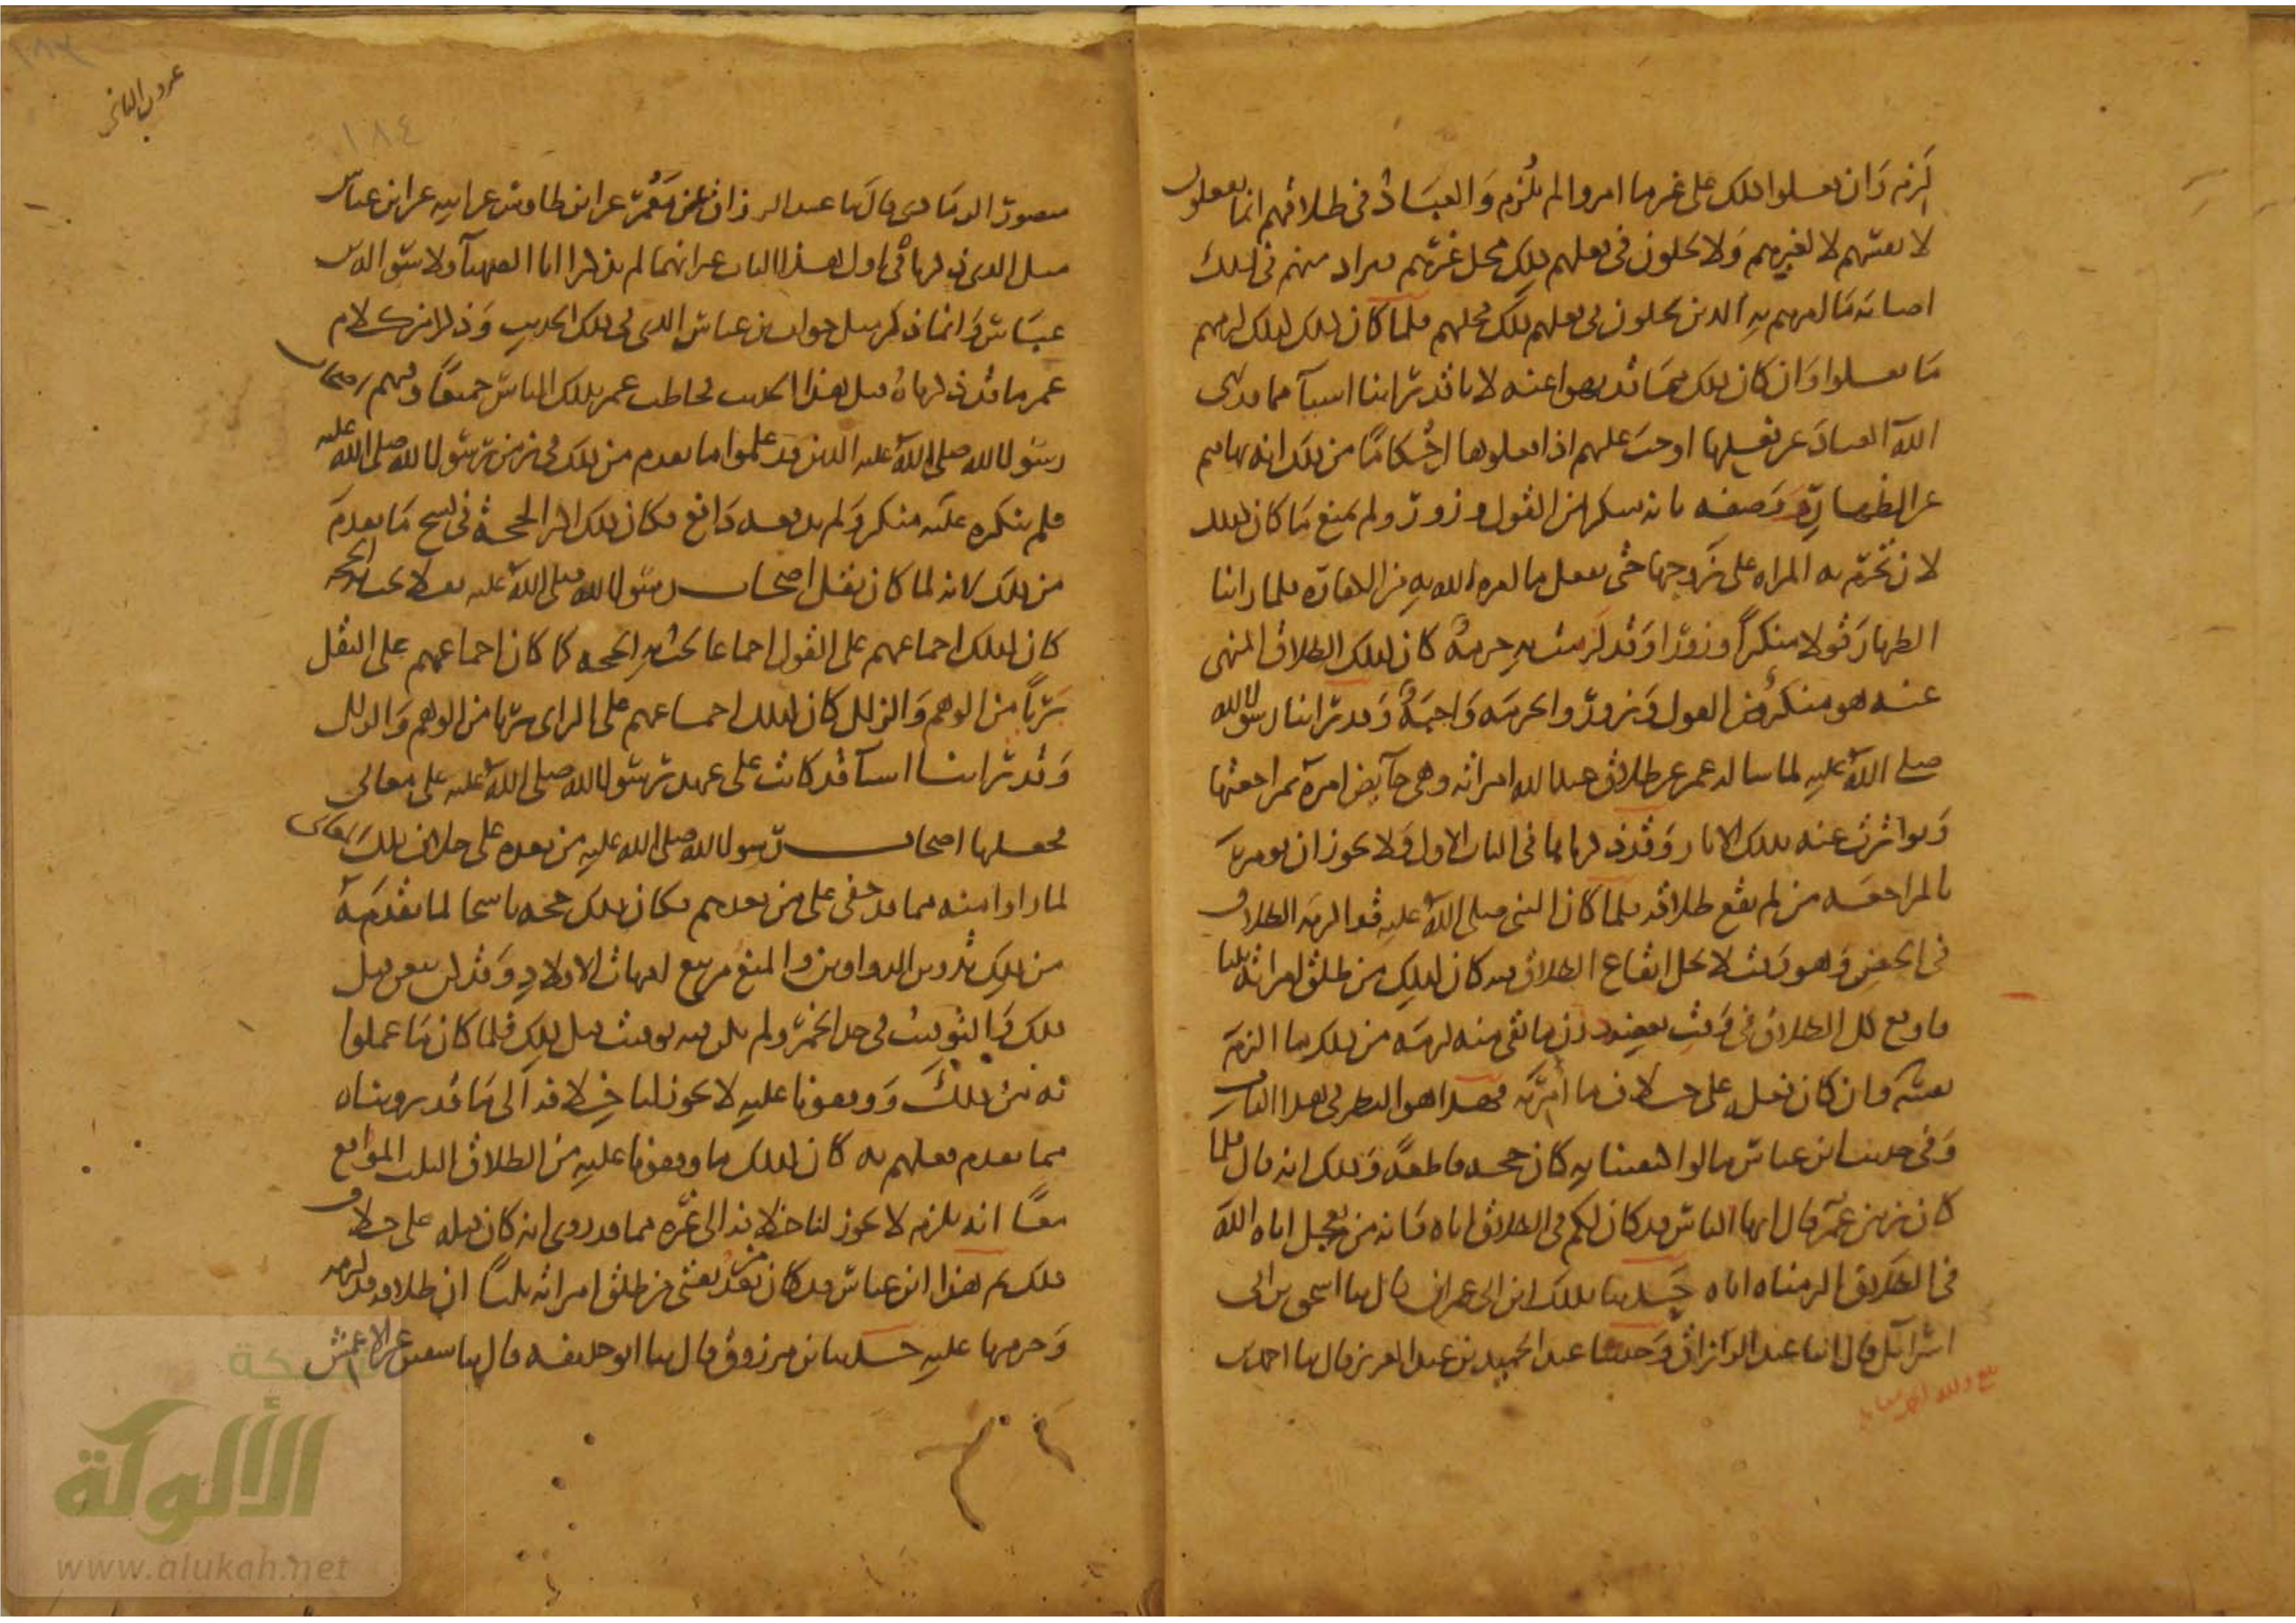 لزم وان فعلوا ذلك على غير ما امروا لم يلزم والعباد في طلاقهم انما يفعلون
لا نفسهم لا لغيرهم ولا يحلون في فعلهم ذلك محل غيرهم فيراد منهم في ذلك
اصابة ما امرهم به الذين يحلون في فعلهم ذلك محلهم فلما كان ذلك كذلك لزمهم
ما فعلوا وان كان ذلك مما قد نهوا عنه لانا قد راينا اشيآ مما قد نهى
الله العباد عن فعلها اوجب عليهم اذا فعلوها احكاما من ذلك انه نهاهم
عن الظهار ووصفه بانه منكر من القول وزور ولم يمنع ما كان كذلك
لان تحرم به المراه على زوجها حتى يفعل ما امره الله به من الكفارة فلما راينا
الظهار قولا منكرا وزورا وقد لزمت به حرمة كان كذلك الطلاق المنهى
عنه هو منكر من القول وزور والحرمه واجبة وقد راينا رسول الله
صلى الله عليه لما ساله عمر عن طلاق عبد الله امراته وهى حآيض امره بمراجعتها
وتواترت عنه بذلك الاثار وقد ذكرناها في الباب الاول ولا يجوز ان يومر
بالمراجعه من لم يقع طلاقه فلما كان النبى صلى الله عليه قد الزمه الطلاق
في الحيض وهو وقت لا يحل ايقاع الطلاق فيه كان كذلك من طلق امراته ثلثا
فاوقع كل الطلاق في وقت بعضه دون ما بقى منه لزمه من ذلك ما الزم
نفسه وان كان فعله على خلاف ما امر به فهذا هو النظر في هذا الباب
وفي حديث ابن عباس ما لو اكتفينا به كان حجه قاطعة وذلك انه قال فلما
كان زمن عمر قال ايها الناس قد كان لكم في الطلاق اناه وانه من تعجل اناه الله
في الطلاق الزمناه اياه حدثنا بذلك ابن ابى عمران قال ثنا اسحق بن ابى
اسرآئل قال انا عبد الرزاق وحدثنا عبد الحميد بن عبد العزيز قال ثنا احمد بن
منصور الرمادى قال ثنا عبد الرزاق عن معمر عن ابن طاوس عن ابيه عن ابن عباس
مثل الذى ذكرناه في اول هذا الباب غير انهما لم يذكرا ابا الصهبآ ولا سؤاله ابن
عباس وانما ذكر مثل جواب ابن عباس الذى في ذلك الحديث وذكرا من كلام
عمر ما قد ذكرناه قبل هذا الحديث فخاطب عمر بذلك الناس جميعا وفيهم اصحاب
رسول الله صلى الله عليه الذين قد علموا ما تقدم من ذلك في زمن رسول الله صلى الله عليه
فلم ينكره عليه منكر ولم يدفعه دافع فكان ذلك اكبر الحجة في نسخ ما تقدم
من ذلك لانه لما كان نقل اصحاب رسول الله صلى الله عليه نقلا تجب به الحجه
كان كذلك اجماعهم على القول اجماعا تجب به الحجه كما كان اجماعهم على النقل
بريا من الوهم والزلل كان كذلك اجماعهم على الراى بريا من الوهم والزلل
وقد راينا اشيآ قد كانت على عهد رسول الله صلى الله عليه على معانى
فجعلها اصحاب رسول الله صلى الله عليه من بعده على خلاف تلك المعانى
لما راوا فيه مما قد خفى على من بعدهم فكان ذلك حجه ناسخا لما تقدمه
من ذلك تدوين الدواوين والمنع من بيع امهات الاولاد وقد كن يبعن قبل
ذلك والتوقيت في حد الخمر ولم يكن فيه توقيت قبل ذلك فلما كان ما عملوا
به من ذلك ووقفونا عليه لا يجوز لنا خلافه الى ما قد رويناه
مما تقدم فعلهم به كان كذلك ما وقفونا عليه من الطلاق الثلث الموقع
معا انه يلزم لا يجوز لنا خلافه الى غيره مما قد روى انه كان قبله على خلاف
ذلك ثم هذا ابن عباس قد كان من بعد يفتى من طلق امراته ثلثا ان طلاقه قد لزمه
وحرمها عليه حدثنا ابن مرزوق قال ثنا ابو حذيفه قال ثنا سفين عن الاعمش
١٨٤
شبكة
الألوكة
www.alukah.net